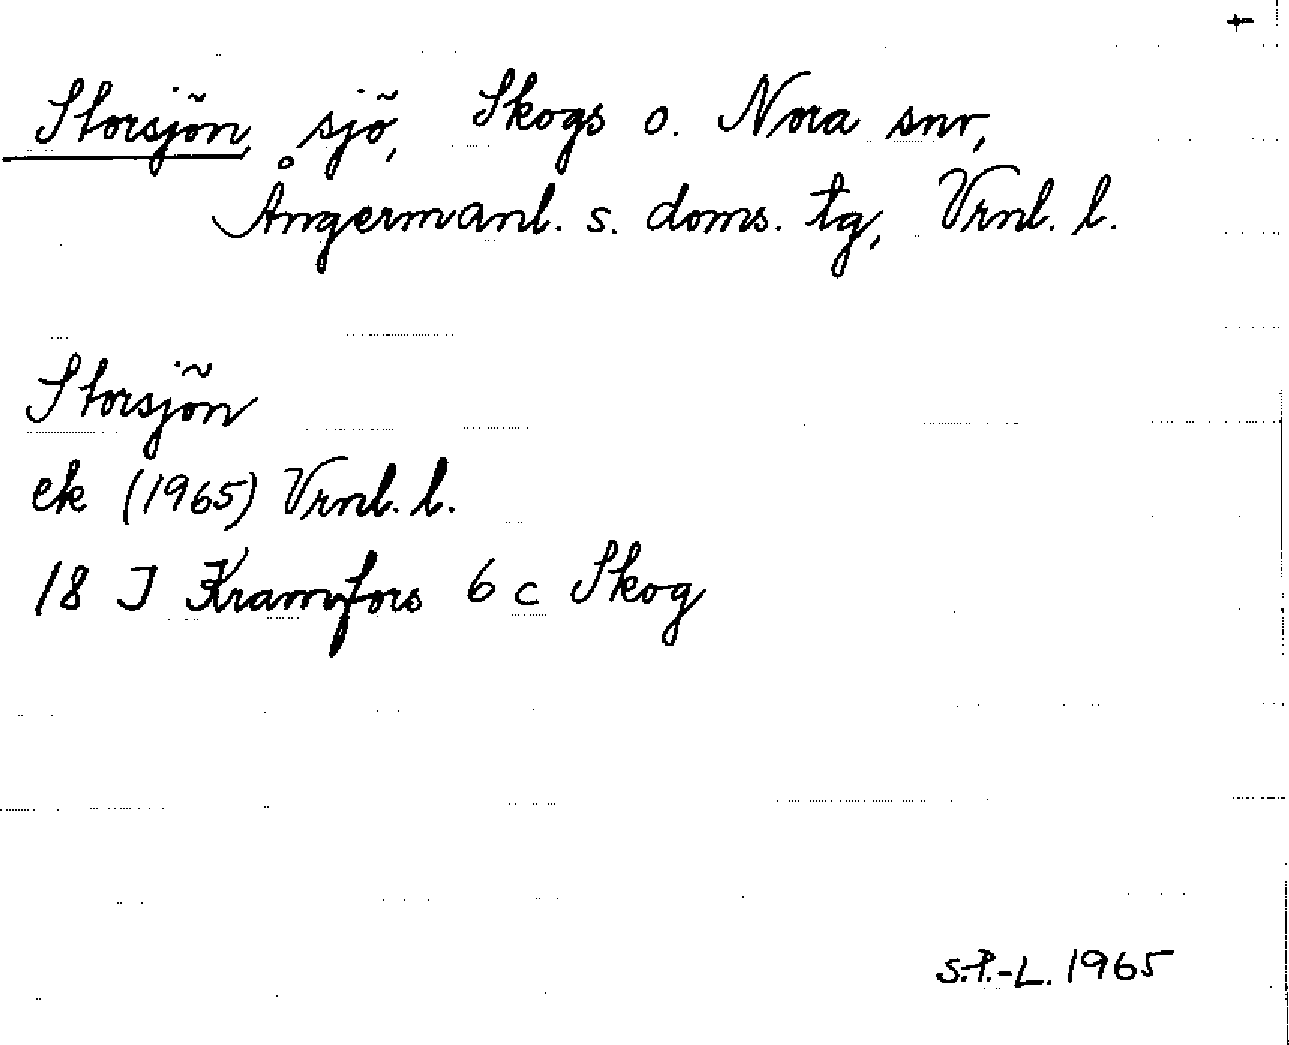 Storsjön, sjö, Skogs o. Nora snr,
Ångermanl. s. doms. tg, Vrnl. l.
Storsjön
ek (1965) Vrnl. l.
18 J Kramfors 6 c Skog
S.P.-L. 1965